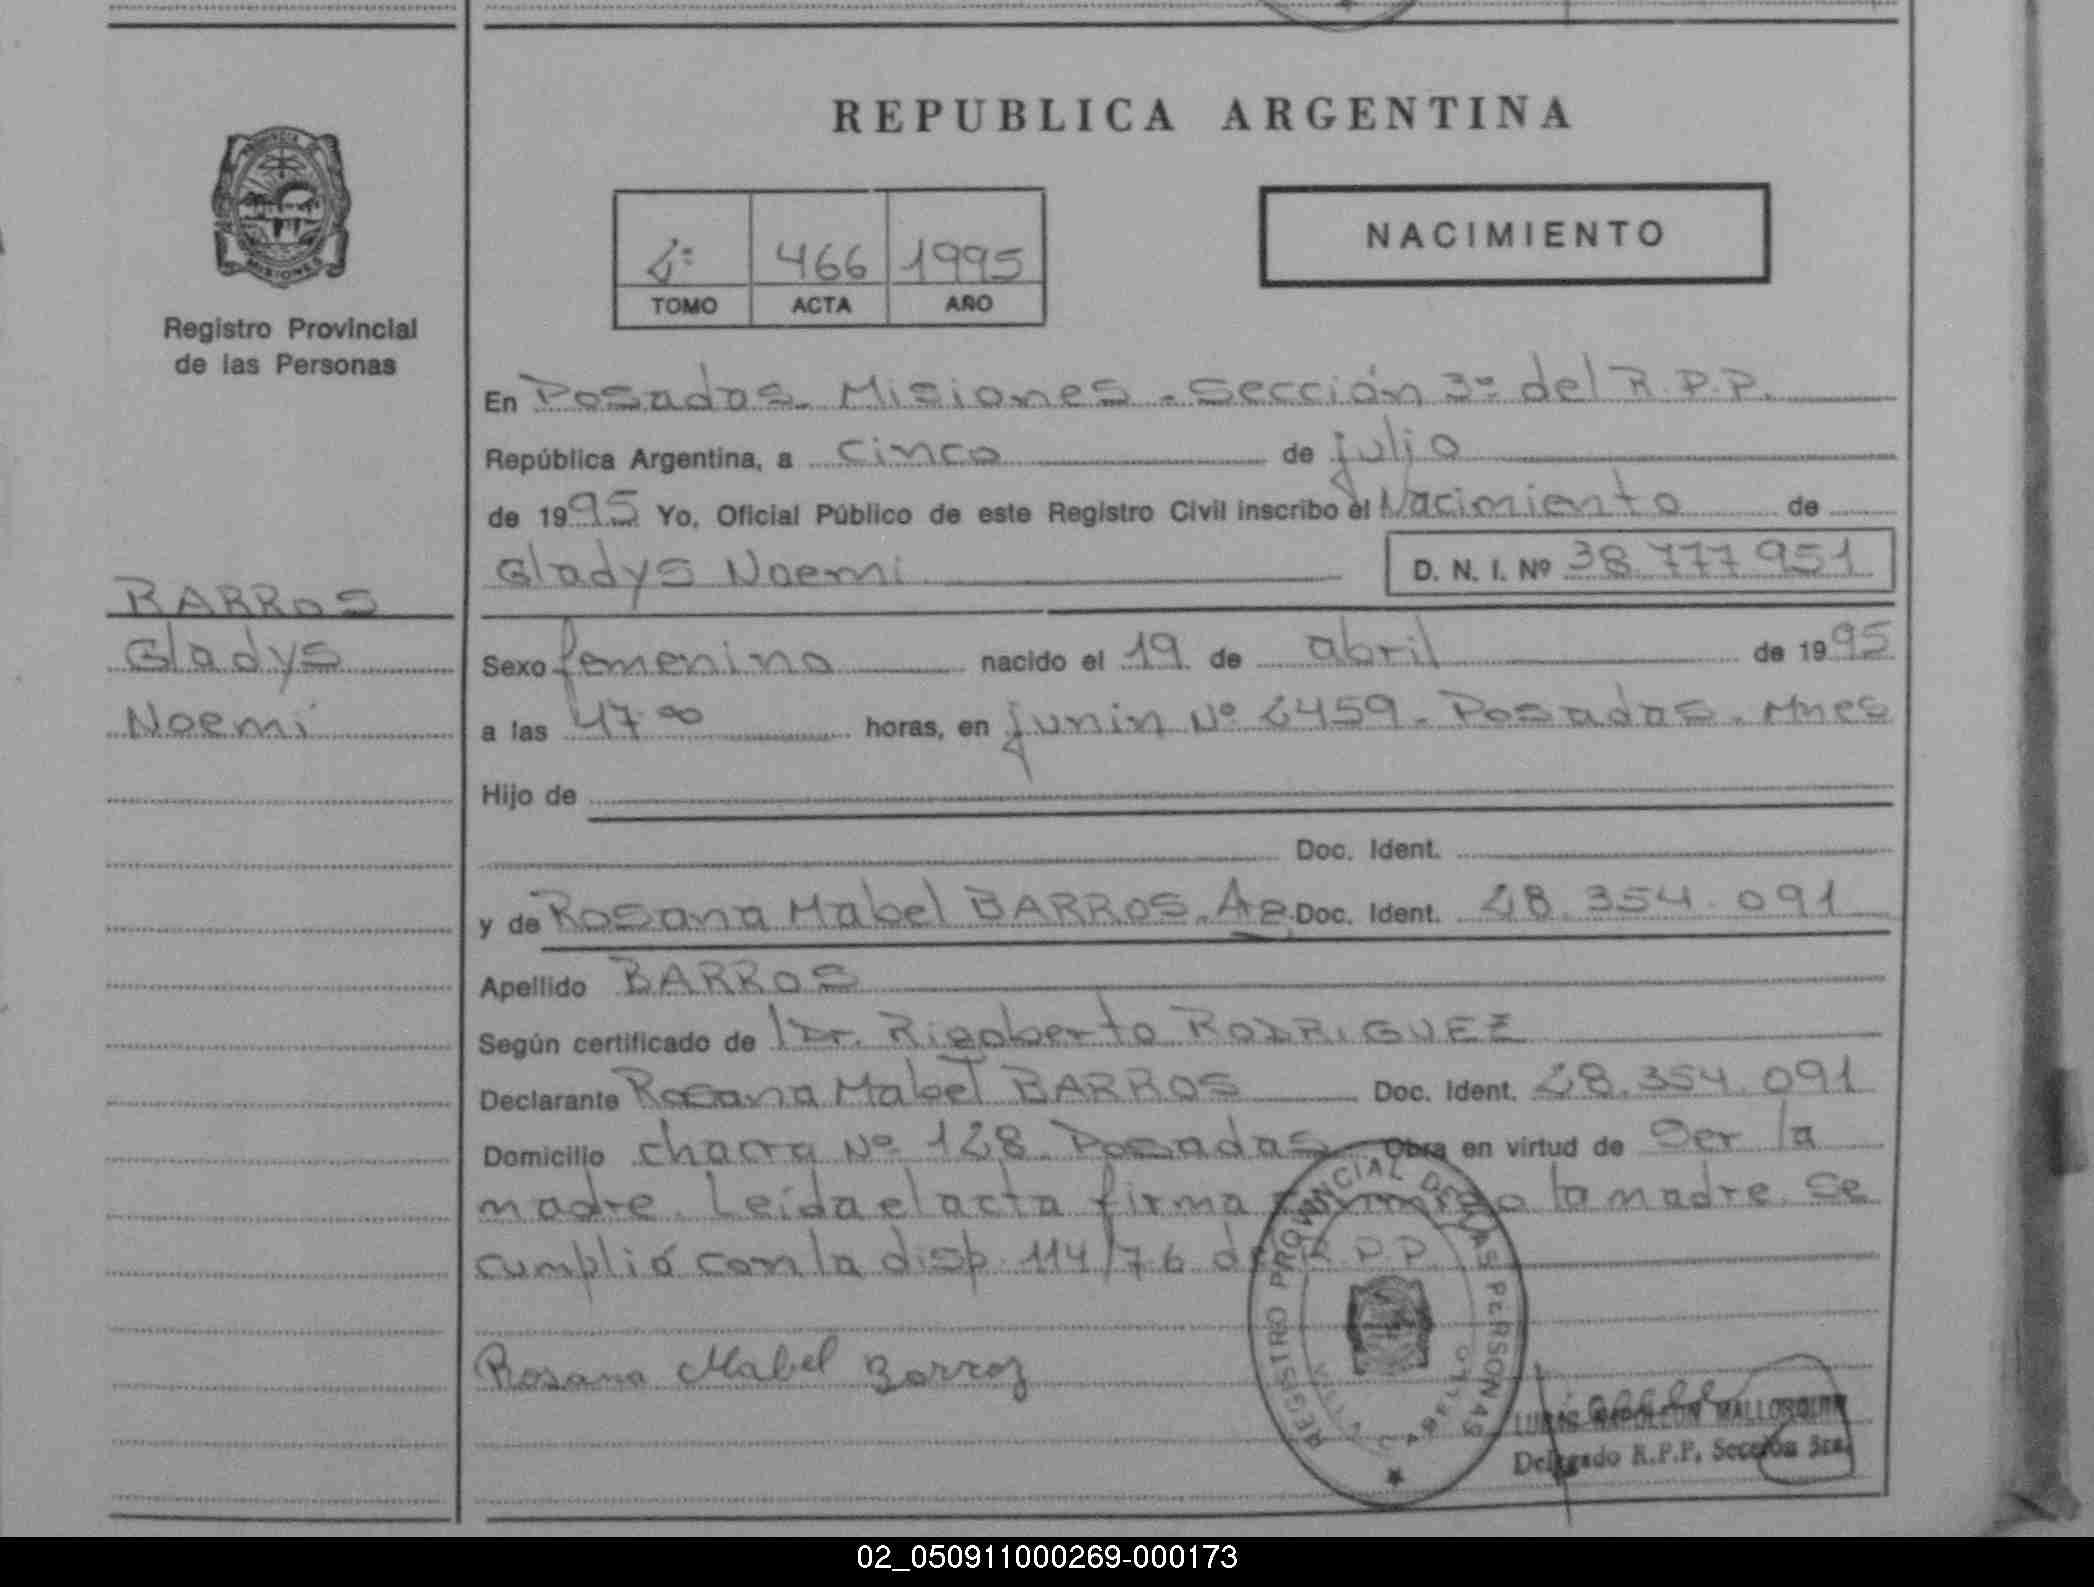 REPUBLICA ARGENTINA
NACIMIENTO
2º 466 1995
TOMO ACTA AÑO
PROVINCIA DE
MISIONES
Registro Provincial
de las Personas
BARROS
Gladys
Noemí
En Posadas. Misiones. Sección 3º del R.P.P.
República Argentina, a cinco de julio
de 1995 Yo, Oficial Público de este Registro Civil inscribo el Nacimiento de
Gladys Noemí D. N. I. Nº 38.777.951
Sexo femenino nacido el 19 de abril de 1995
a las 17.00 horas, en junín Nº 2459. Posadas. Mnes
Hijo de
Doc. Ident.
y de Rosana Mabel BARROS. Ag. Doc. Ident. 28.354.091
Apellido BARROS
Según certificado de Dr. Rigoberto RODRIGUEZ
Declarante Rosana Mabel BARROS Doc. Ident. 28.354.091
Domicilio chacra Nº 128. Posadas Obra en virtud de Ser la
madre. Leída el acta firma conmigo la madre. Se
cumplió con la disp. 114/76 del R.P.P.
Rosana Mabel Barroz
REGISTRO PROVINCIAL DE LAS PERSONAS
LUCAS NAPOLEON MALLORQUIN
Delegado R.P.P. Sección 3ra.
02_050911000269-000173